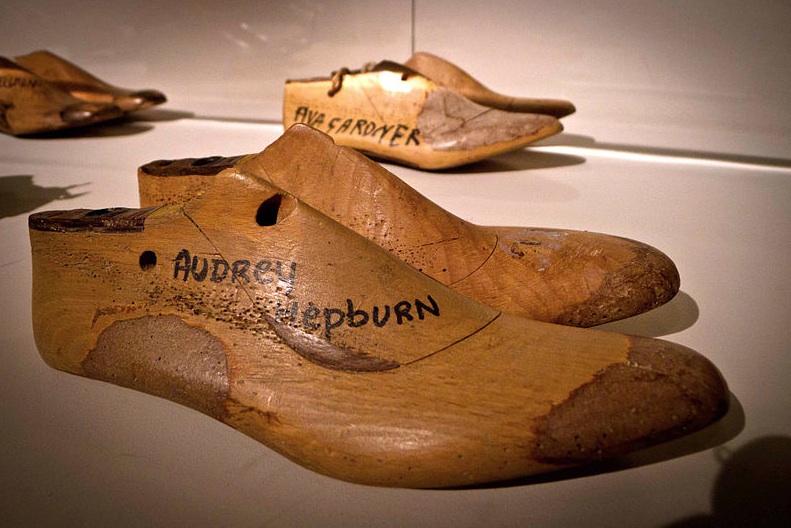 AVA GARDNER
AUDREY
Hepburn